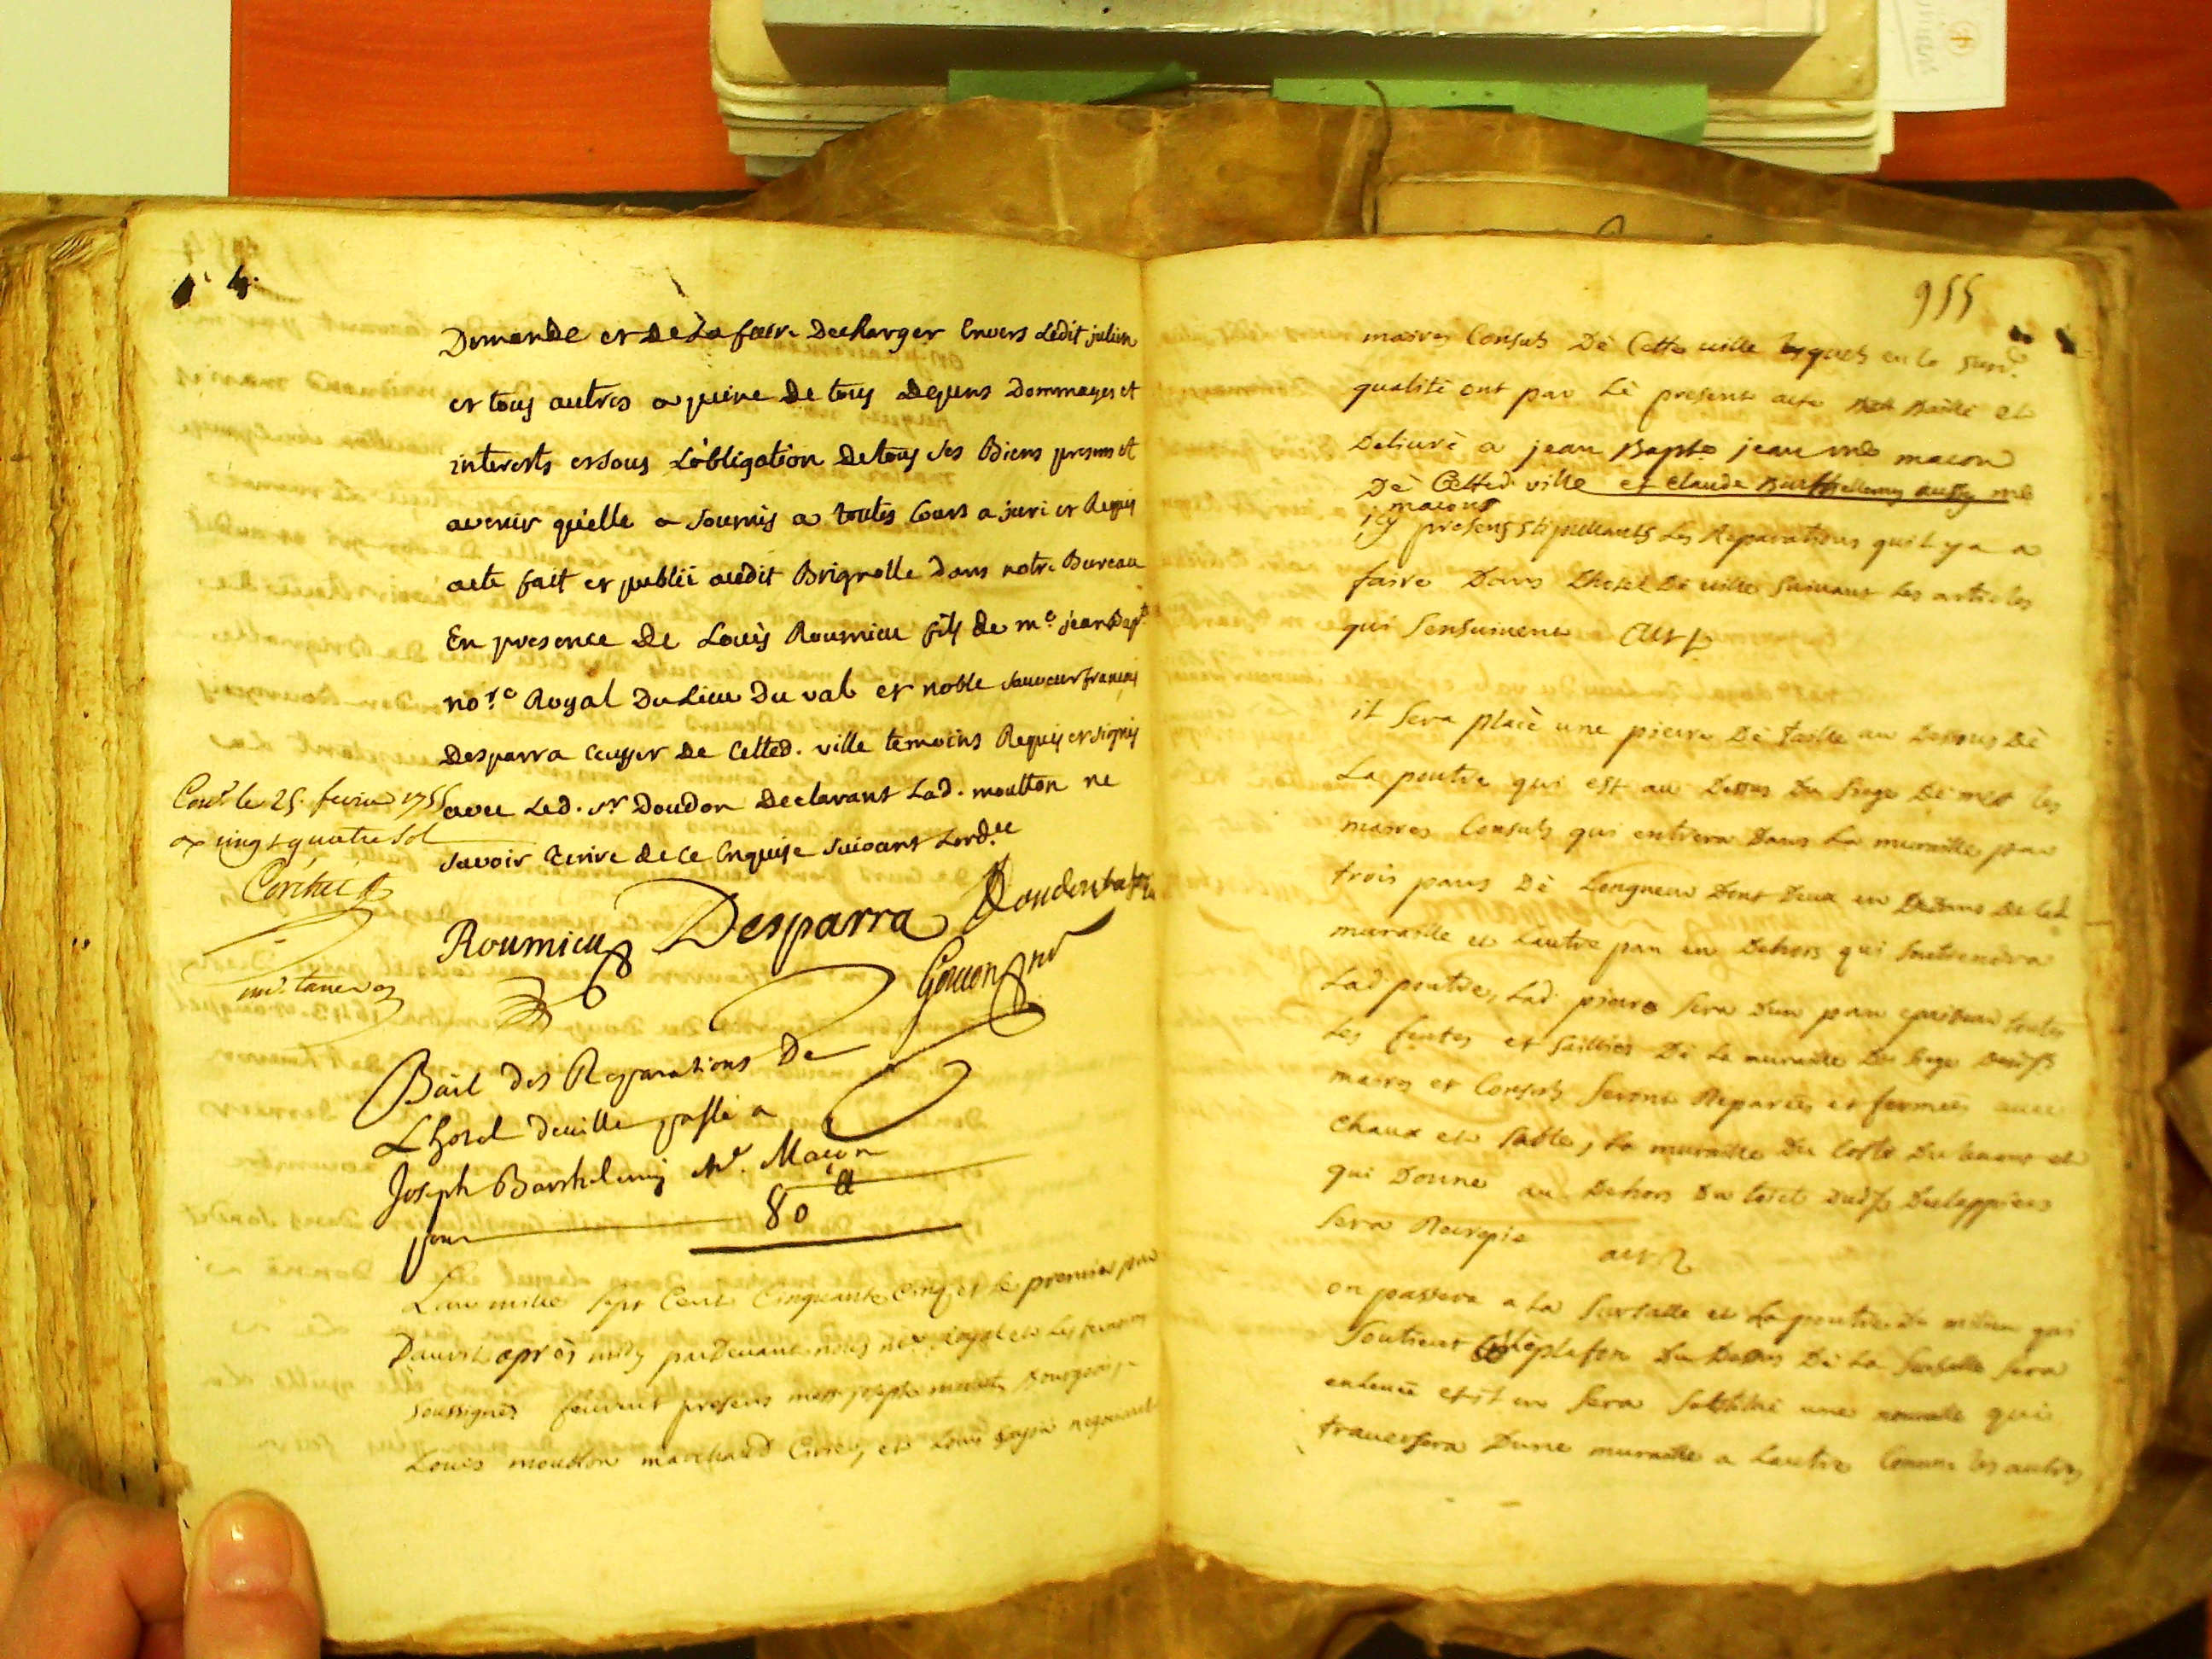 Demande et de la faire decharger Envers Ledit julien
et tous autres a peine de tous depens Dommages et
interests et sous L'obligation de tous ses Biens presens et
avenir qu'elle a soumis a toutes Cours a juré et Requis
acte fait et publié audit Brignolle dans notre Bureau
En presence de Louis Roumieu fils de me jean Bapte
nore Royal Du Lieu Du val et noble sauveur françois
Desparra ecuyer de Cetted. ville temoins Requis et signés
avec Led. Sr Doudon declarant Lad. moutton ne
savoir Ecrire de ce Enquise suivant Lordce
Conlé le 25. fevrier 1755
vingt quatre sol
Roumieu Desparra Doudon
Gouon nre
Bail des Reparations De
L'hotel de ville passé a
Joseph Barthelemy Me. Maçon
pour 80 ₶
L'an mille sept Cent Cinquante Cinq et le premier jour
D'avril après midy pardevant nous nore royal et les temoins
soussignés feurent presens messr joseph Bourgeois
Louis moutton marchand Cirier, et Louis negociant
955
maires Consuls De Cette ville lesquels en la susd.
qualité ont par Le present acte Baillé et
Delivré a jean Bapte jean me macon
De Cetted ville et Claude Barthellemy aussy me
macons
icy presens stipullants Les Reparations quil y a a
faire Dans Lhotel De ville suivant les articles
qui sensuivent
il sera placé une pierre De taille au dessous De
La poutre qui est au dessus Du siege De messrs les
maires Consuls qui entrera Dans La muraille par
trois pans De Longueur Dont Deux en Dedans de lad.
muraille et Lautre pan en Dehors qui soutiendra
Lad poutre, Lad pierre sera Dun pan toutes
les fentes et saillies De la muraille Du siege
maires et Consuls seront Reparées et fermées avec
Chaux et sable, La muraille Du Costé
qui Donne au Dehors Du
sera Recrepie
on passera a la sursalle et La poutre du milieu qui
soutient le plafon Du Dessus De La sursalle sera
enlevée et il en sera substitué une nouvelle qui
traversera Dune muraille a Lautre Comme les autres